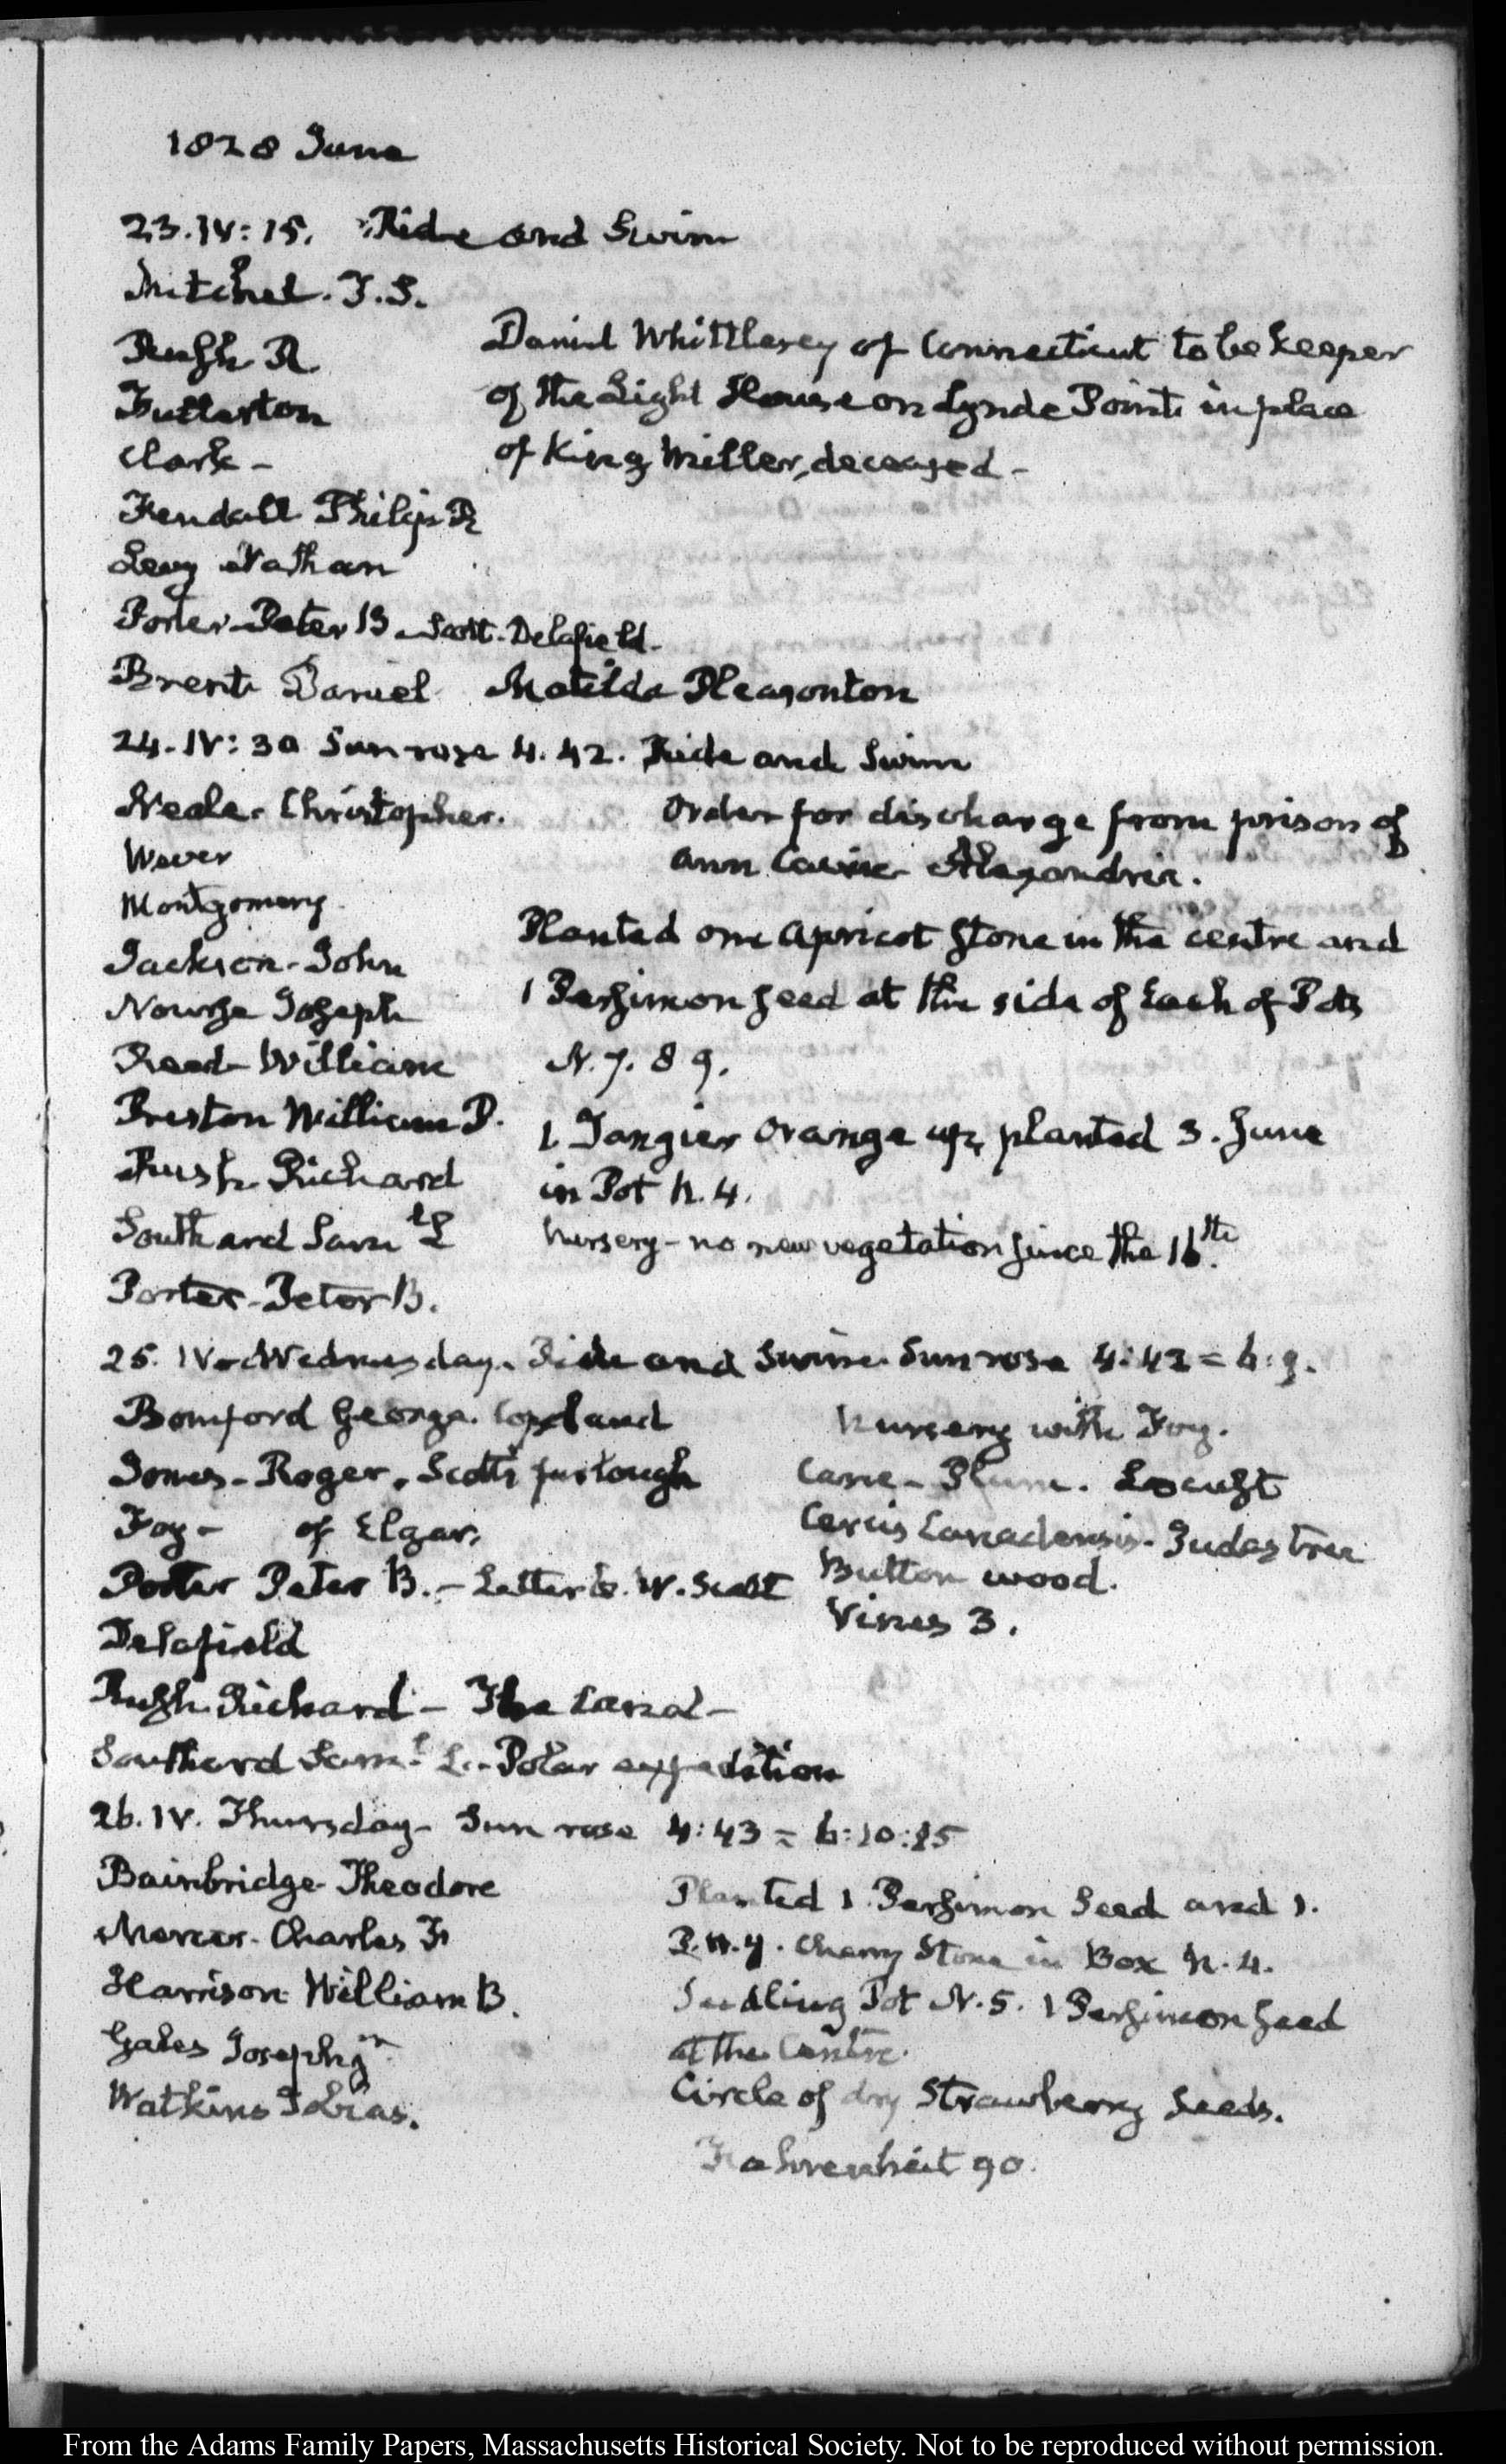 1828 June
23. IV: 15. Ride and Swim
Mitchel. T.S.
Rush R
Fullerton
Clark -
Fendall Philip R
Levy Nathan
Daniel Whittlesey of Connecticut to be keeper
of the Light House on Lynde Point in place
of King Miller, deceased -
Porter Peter B - Scott. Delafield.
Brent Daniel Matilda Pleasonton
24. IV: 30 Sun rose 4. 42. Ride and Swim
Neale. Christopher.
Wever
Montgomery
Jackson - John
Nourse Joseph
Reed William
Preston William P.
Rush Richard
Southard Saml L
Porter - Peter B.
Order for discharge from prison of
Ann Alexandria.
Planted one Apricot stone in the centre and
1 Persimon seed at the side of each of Pots
N. 7. 8 9.
1 Tangier Orange up, planted 3. June
in Pot N. 4.
Nursery - no new vegetation since the 16th.
25. IV. Wednesday. Ride and Swim. Sun rose 4:42 = 6:9.
Bomford George. Copeland
Jones - Roger. Scott's furlough
Foy - of Elgar.
Porter Peter B. - Letter to W. Scott
Delafield
Rush Richard - The Canal -
Southard Saml L. - Polar expedition
Nursery with Foy.
Cane - Plum. Locust
Cercis Canadensis. Judas tree
Button wood.
Vines 3.
26. IV. Thursday - Sun rose 4:43 = 6:10:15
Bainbridge Theodore
Mercer. Charles F
Harrison William B.
Gales Joseph jr
Watkins Tobias.
Planted 1 Persimon Seed and 1.
P.N.4. Cherry Stone in Box N. 4.
Seedling Pot N. 5. 1 Persimon seed
at the Centre.
Circle of dry Strawberry seeds.
Fahrenheit 90.
From the Adams Family Papers, Massachusetts Historical Society. Not to be reproduced without permission.